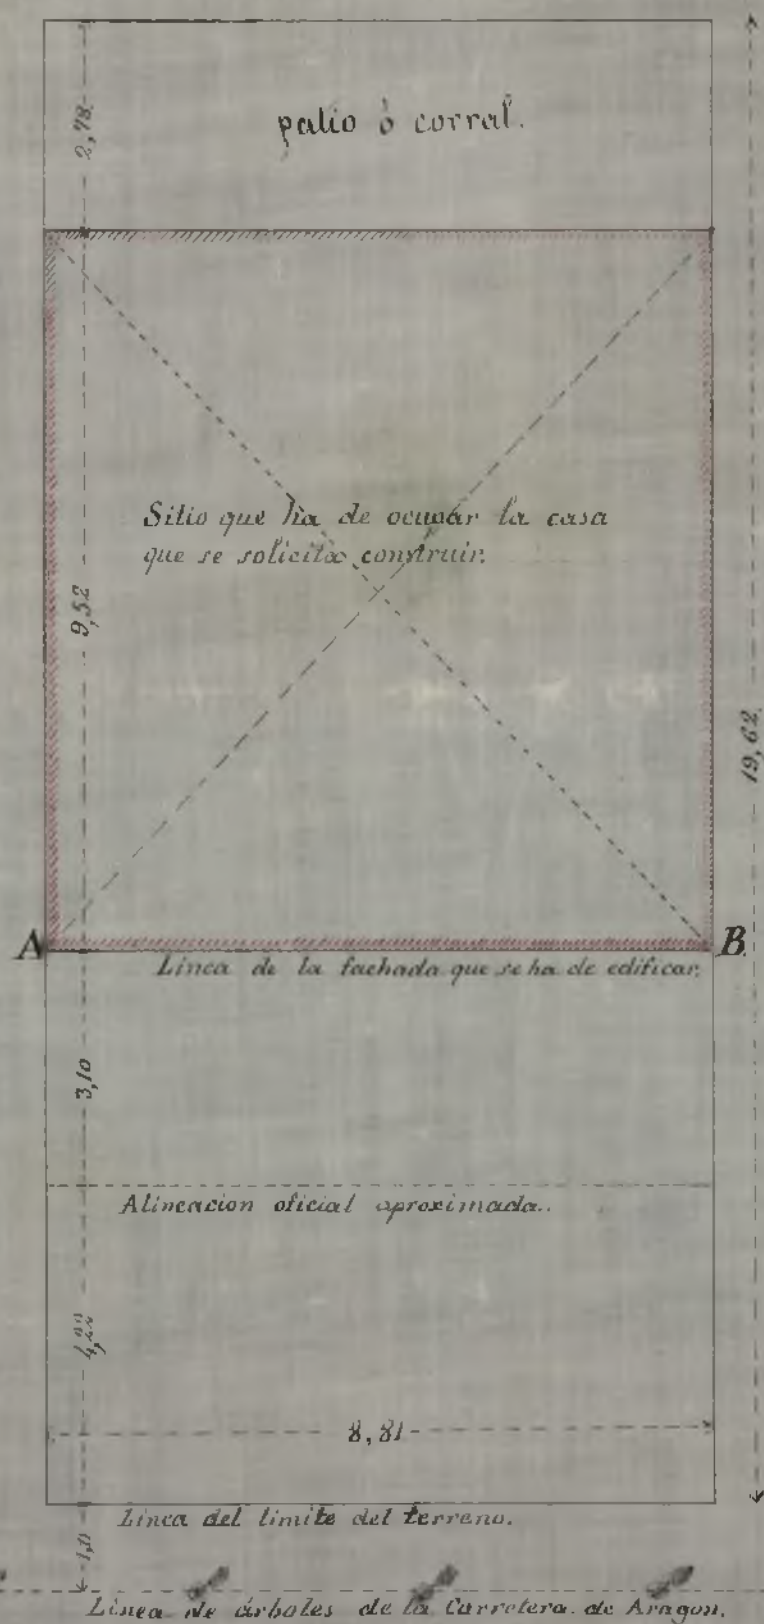 patio ó corral.
2,78
Sitio que ha de ocupar la casa
que se solicita construir.
9,52
19,62
A
B
Linea de la fachada que se ha de edificar.
3,10
Alineacion oficial aproximada.
4,22
8,81
Linea del limite del terreno.
Linea de árboles de la Carretera de Aragon.